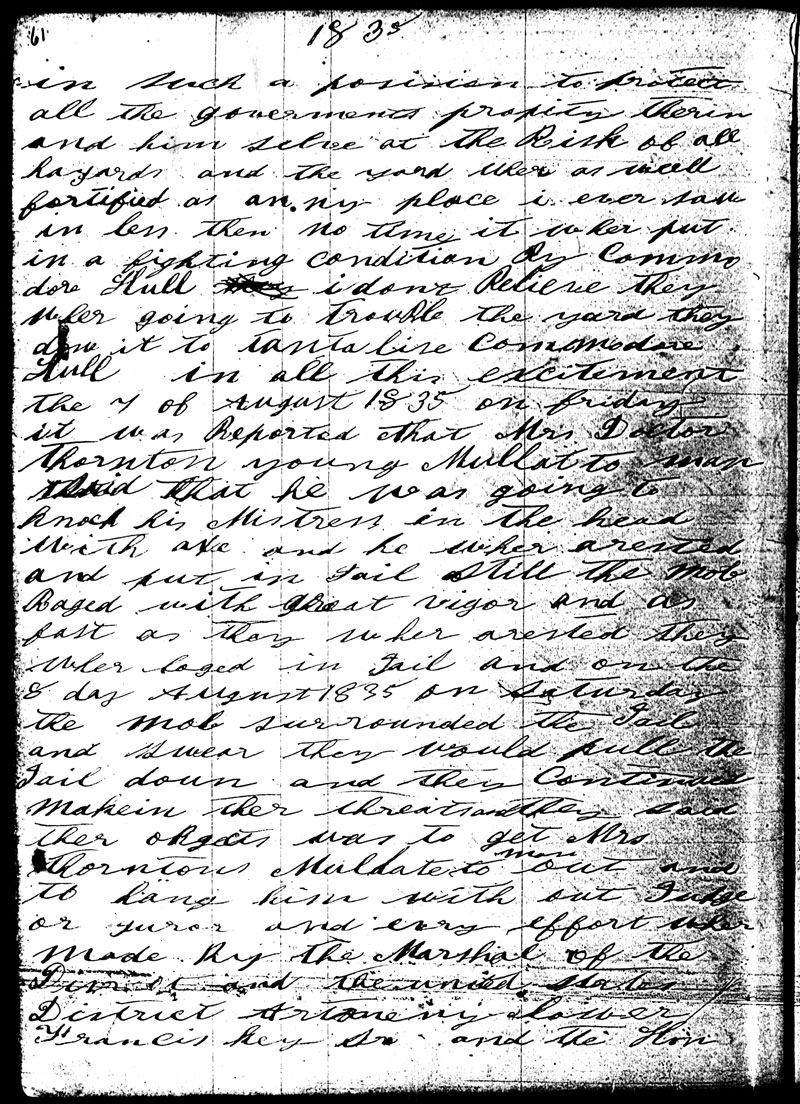 61
1835
in such a posision to protect
all the goverments propity therin
and him selve at the Risk of all
hazards and the yard wher as well
fortified as an.ny place i ever saw
in less then no time it wher put
in a fighting Condition By Commo
dore Hull i dont Believe they
wher going to trouble the yard they
done it to tantalise Commodore
Hull in all this excitement
the 7 of August 1835 on friday
it was Reported that Mrs Doctor
Thornton young Mullatto man
said that he was going to
knock his Mistress in the head
With axe and he wher arested
and put in Jail Still the Mob
Raged with great vigor and as
fast as they wher arested they
wher loged in Jail and on the
8 day August 1835 on Saturday
the Mob surrounded the Jail
and swear they would pull the
Jail down and they Continued
Makein ther threats and they said
ther objects was to get Mrs
Thorntons Mulatto man out and
to hang him with out Judge
or juror and evry effort wher
Made By the Marshal of the
District and the united states
District Atorneny
Francis Key Sr and the Hon